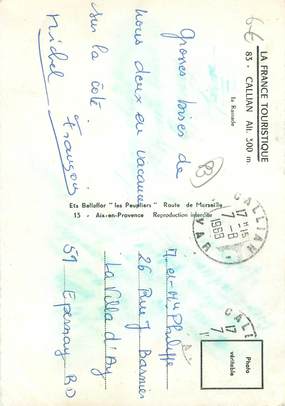 LA FRANCE TOURISTIQUE
83 - CALLIAN Alt. 300 m
La Rascade
6€
Grosses bises de
nous deux en vacances
sur la côte
Michel François
83
Ets Bellaffor "les Peupliers" Route de Marseille
13 - Aix-en-Provence Reproduction interdite
CALLIAN
17 H 15
7-8
1968
VAR
CALL
17
7
Photo
véritable
M. et Mme Philippe
26 Rue J
La Villa d'Ay
51 Epernay